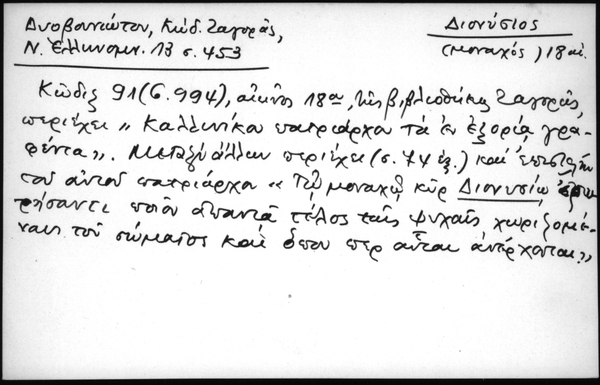 Δυοβουνιώτου, Κώδ. Ζαγορᾶς,
Ν. Ἑλληνομν. 13 σ. 453
Διονύσιος
(μοναχός) 18 αἰ.
Κῶδιξ 91 (G. 994), αἰῶνος 18ου, τῆς βιβλιοθήκης Ζαγορᾶς,
περιέχει „Καλλινίκου πατριάρχου τὰ ἐν ἐξορίᾳ γρα-
φέντα". Μεταξὺ ἄλλων περιέχει (σ. 74 ἑξ.) καὶ ἐπιστολὴν
τοῦ αὐτοῦ πατριάρχου „Τῷ μοναχῷ κὺρ Διονυσίῳ ἐρω-
τήσαντι ποῖον ἀπαντᾷ τέλος ταῖς ψυχαῖς χωριζομέ-
ναις τοῦ σώματος καὶ ὅπου περ αὗται ἀπέρχονται."